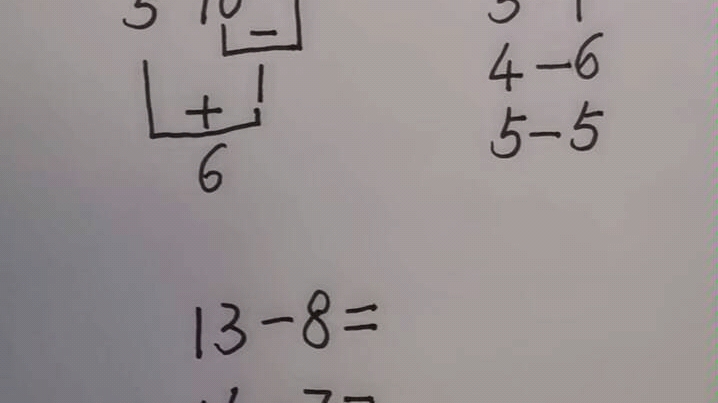 5 10
−
1
+
6
4−6
5−5
13−8=